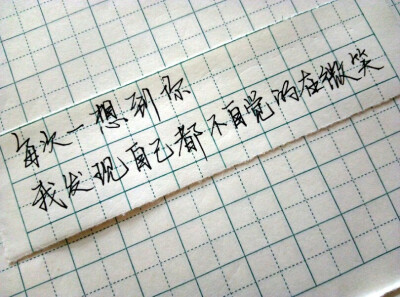 每次一想到你
我发现自己都不自觉的在微笑